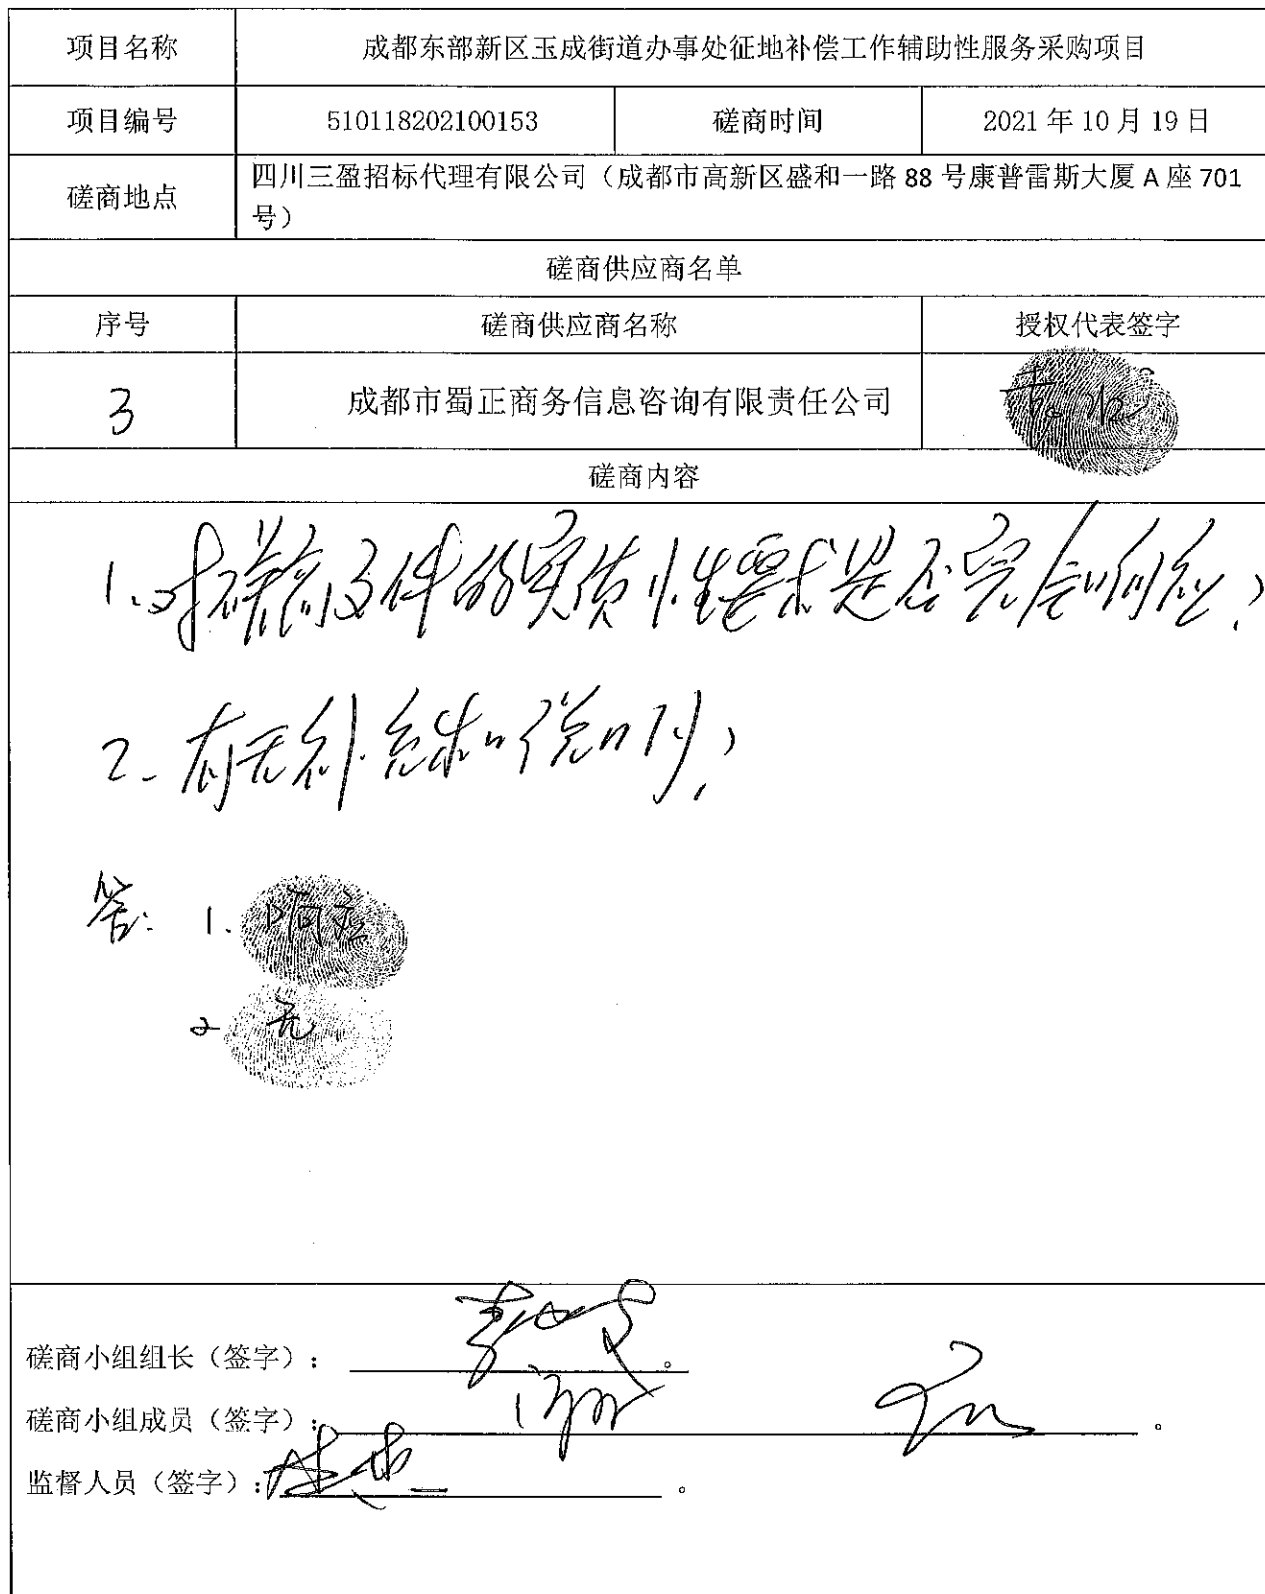 项目名称 成都东部新区玉成街道办事处征地补偿工作辅助性服务采购项目
项目编号 510118202100153 磋商时间 2021年10月19日
磋商地点 四川三盈招标代理有限公司（成都市高新区盛和一路88号康普雷斯大厦A座701
号）
磋商供应商名单
序号 磋商供应商名称 授权代表签字
3 成都市蜀正商务信息咨询有限责任公司
磋商内容
1.对磋商文件的实质性要求是否完全响应？
2.有无补充和说明？
答：1.响应
2.无
磋商小组组长（签字）： 。
磋商小组成员（签字）： 。
监督人员（签字）： 。